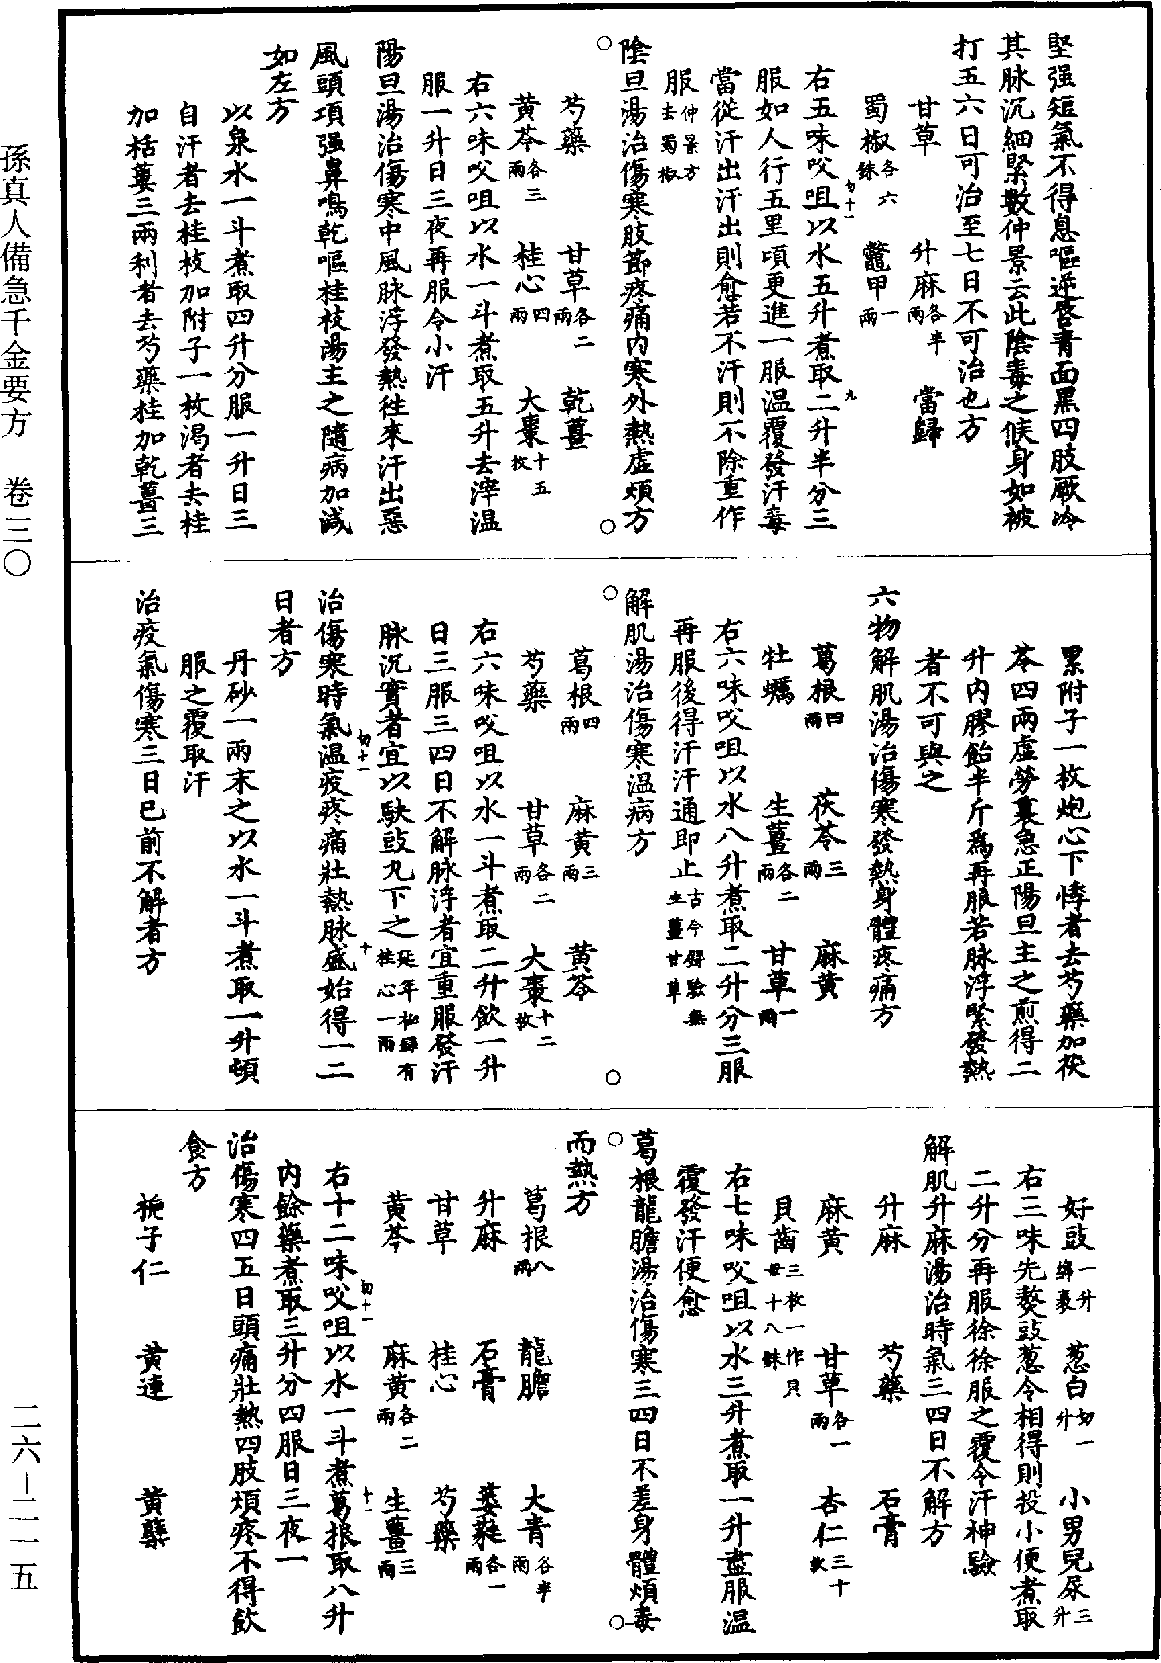 堅强短氣不得息嘔逆唇青面黑四肢厥冷
其脉沉細緊數仲景云此陰毒之候身如被
打五六日可治至七日不可治也方
甘草 升麻各半兩 當歸
蜀椒各六銖 鼈甲一兩
右五味㕮咀以水五升煮取二升半分三
服如人行五里頃更進一服温覆發汗毒
當從汗出汗出則愈若不汗則不除重作
服仲景方去蜀椒
陰旦湯治傷寒肢節疼痛内寒外熱虚煩方
芍藥 甘草各二兩 乾薑
黄芩各三兩 桂心四兩 大棗十五枚
右六味㕮咀以水一斗煮取五升去滓温
服一升日三夜再服令小汗
陽旦湯治傷寒中風脉浮發熱徃來汗出惡
風頭項强鼻鳴乾嘔桂枝湯主之隨病加減
如左方
以泉水一斗煮取四升分服一升日三
自汗者去桂枝加附子一枚渴者去桂
加栝蔞三兩利者去芍藥桂加乾薑三
累附子一枚炮心下悸者去芍藥加茯
苓四兩虚勞裏急正陽旦主之煎得二
升内膠飴半斤爲再服若脉浮緊發熱
者不可與之
六物解肌湯治傷寒發熱身體疼痛方
葛根四兩 茯苓三兩 麻黄
牡蠣 生薑各二兩 甘草一兩
右六味㕮咀以水八升煮取二升分三服
再服後得汗汗通即止古今録驗無生薑甘草
解肌湯治傷寒温病方
葛根四兩 麻黄三兩 黄芩
芍藥 甘草各二兩 大棗十二枚
右六味㕮咀以水一斗煮取二升飲一升
日三服三四日不解脉浮者宜重服發汗
脉沉實者宜以駃豉丸下之延年祕録有桂心一兩
治傷寒時氣温疫疼痛壯熱脉盛始得一二
日者方
丹砂一兩末之以水一斗煮取一升頓
服之覆取汗
治疫氣傷寒三日已前不解者方
好豉一升綿裹 葱白切一升 小男兒尿三升
右三味先熬豉葱令相得則投小便煮取
二升分再服徐徐服之覆令汗神驗
解肌升麻湯治時氣三四日不解方
升麻 芍藥 石膏
麻黄 甘草各一兩 杏仁三十枚
貝齒三枚一作貝母十八銖
右七味㕮咀以水三升煮取一升盡服温
覆發汗便愈
葛根龍膽湯治傷寒三四日不差身體煩毒
而熱方
葛根八兩 龍膽 大青各半兩
升麻 石膏 葳蕤各一兩
甘草 桂心 芍藥
黄芩 麻黄各二兩 生薑三兩
右十二味㕮咀以水一斗煮葛根取八升
内餘藥煮取三升分四服日三夜一
治傷寒四五日頭痛壯熱四肢煩疼不得飲
食方
梔子仁 黄連 黄蘗
孫真人備急千金要方 卷三〇
二六—二一五